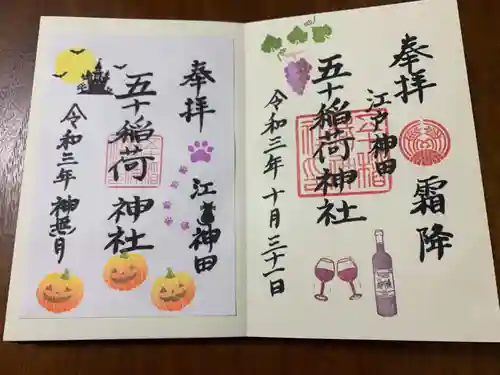 奉拝
江戸神田
霜降
五十稲荷神社
令和三年十月三十一日
奉拝
江戸神田
五十稲荷神社
令和三年神無月